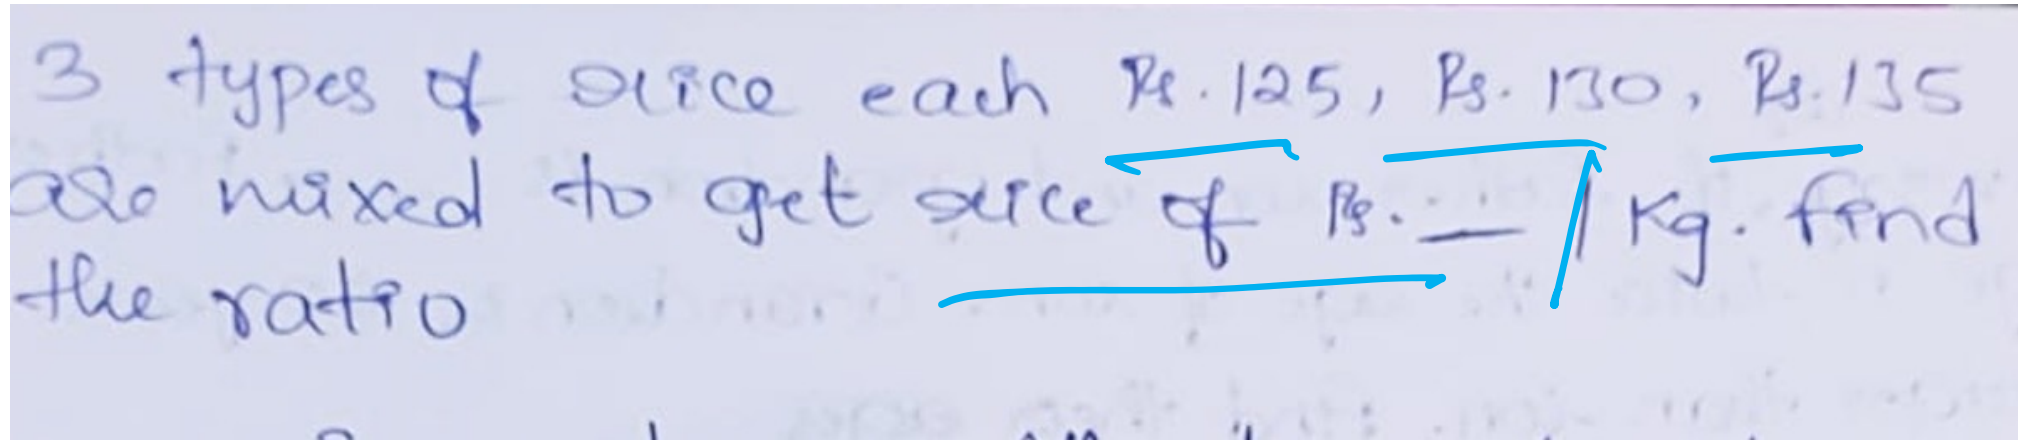 3 types of rice each Rs. 125, Rs. 130, Rs. 135
are mixed to get rice of Rs. __ / Kg. find
the ratio